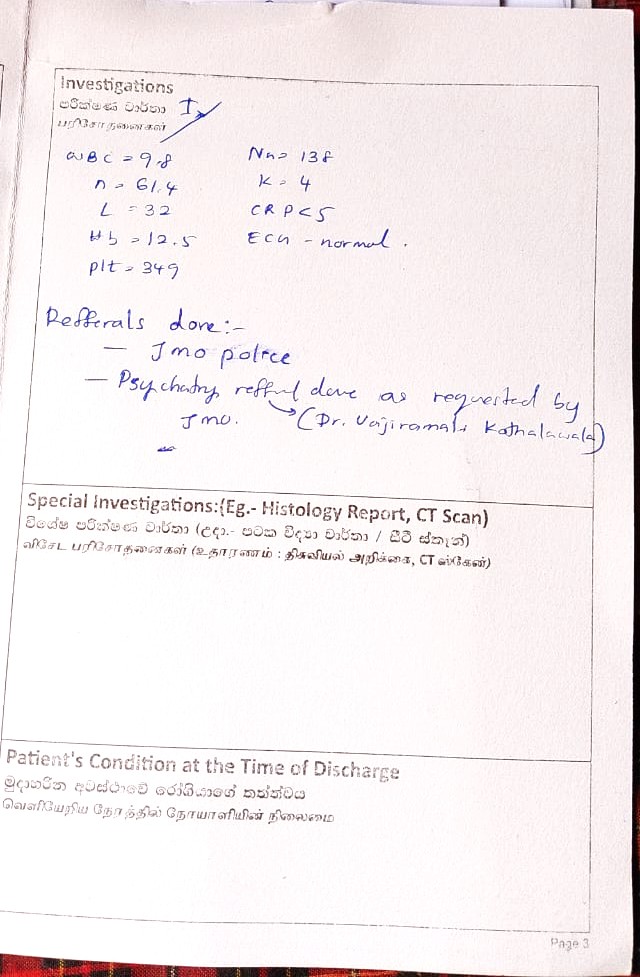 Investigations
පරීක්ෂණ වාර්තා
பரிசோதனைகள்
WBC = 9.8
n = 61.4
L = 32
Hb = 12.5
plt = 349
Na = 138
K = 4
CRP < 5
ECG - normal.
Refferals done:-
— Jmo police
— Psychatry done as requested by
Jmo. (Dr. Vajiramali Kothalawala)
Special Investigations:(Eg.- Histology Report, CT Scan)
විශේෂ පරීක්ෂණ වාර්තා (උදා.- පටක විද්‍යා වාර්තා / සීටී ස්කෑන්)
விசேட பரிசோதனைகள் (உதாரணம் : திசுவியல் அறிக்கை, CT ஸ்கேன்)
Patient's Condition at the Time of Discharge
මුදාහරින අවස්ථාවේ රෝගියාගේ තත්ත්වය
வெளியேறிய நேரத்தில் நோயாளியின் நிலைமை
Page 3